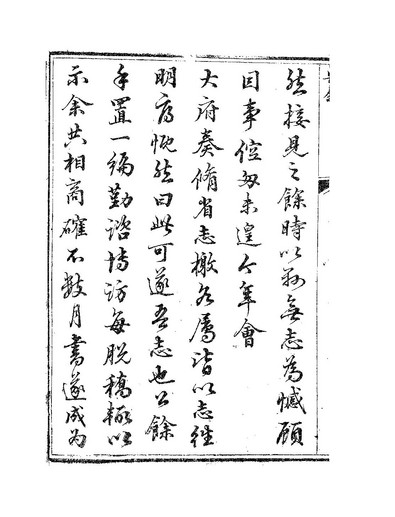 然接見之餘時以郡無志為憾顧
因事倥匆未遑今年會
大府奏脩省志檄各屬皆以志進
明府慨然曰此可遂吾志也公餘
手置一編勤諮博訪每脫稿輒以
示余共相商確不數月書遂成為